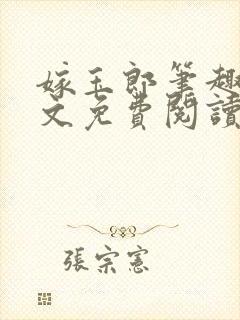 嫁玉郎筆趣
文免費閱讀
張宗憲